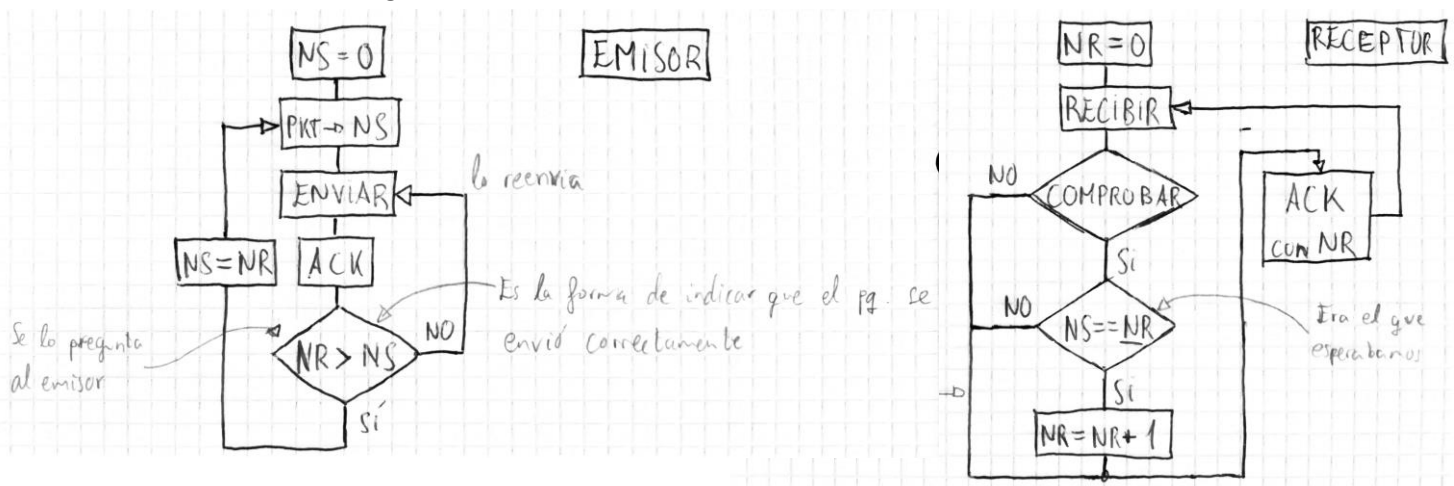 NS = 0
EMISOR
PKT → NS
ENVIAR
lo reenvia
NS=NR
ACK
Es la forma de indicar que el pq. se
envió correctamente
NR > NS
NO
Se lo pregunta
al emisor
Sí
NR = 0
RECEPTOR
RECIBIR
NO
COMPROBAR
ACK
con NR
Si
NO
NS==NR
Era el que
esperabamos
Si
NR = NR + 1